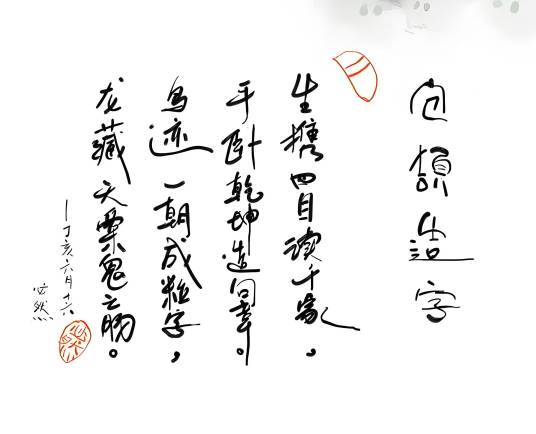 仓頡造字
生携四目读千象，
平卧乾坤造章。
鸟迹一朝成粒字，
龙藏天粟鬼之肠。
丁亥六月十六
必然